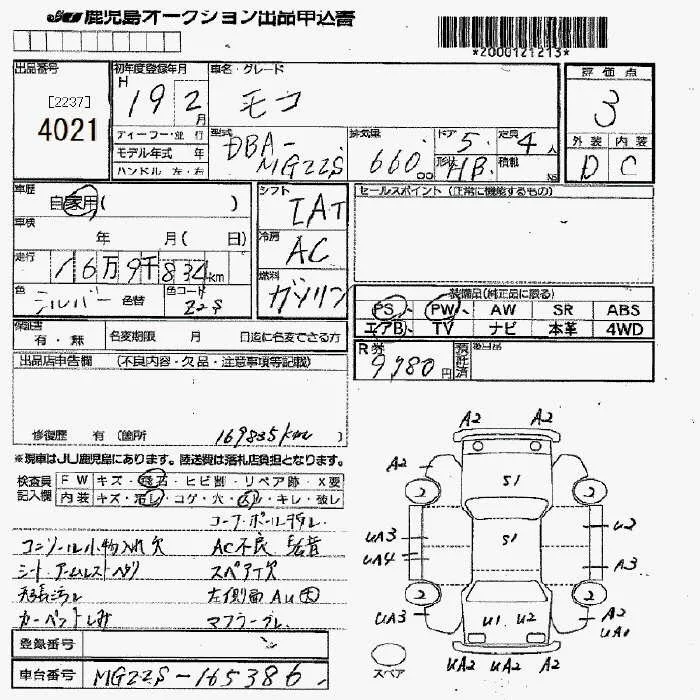 JU 鹿児島オークション出品申込書
*2000121213*
出品番号
[2237]
4021
初年度登録年月
H 19 2月
ディーラー・並 行
モデル年式 年
ハンドル 左・右
車名・グレード
モコ
型式
DBA-
MG22S
排気量
660 cc
ドア
5
形状
HB
定員
4人
積載
KG
評価点
3
外装 内装
D C
車歴
自家用( )
車検
年 月( 日)
走行
16万9千834km
色
シルバー 色替
色コード
Z2S
シフト
IAT
冷房
AC
燃料
ガソリン
セールスポイント (正常に機能するもの)
装備品(純正品に限る)
PS PW AW SR ABS
エアB TV ナビ 本革 4WD
保証書
有・無
名変期限 月 日迄に名変できる方
R券
9980円
預託済
後日品
出品店申告欄 (不良内容・欠品・注意事項等記載)
修復歴 有 (箇所 169835km )
※現車はJU鹿児島にあります。陸送費は落札店負担となります。
検査員
記入欄
FW キズ・飛石・ヒビ割・リペア跡・X要
内装 キズ・汚レ・コゲ・穴・スレ・キレ・破レ
コンソール小物入れ欠 AC不良
シートアームレスト スペア欠
天張汚レ 左側面AU大
カーペットしみ
登録番号
車台番号
MG22S-165386
A2 A2
A2
2 2
S1
UA3
U2
S1
UA4
A3
2 2
UA3
U1 U2
A2
UA1
UA2 UA2 A2
スペア